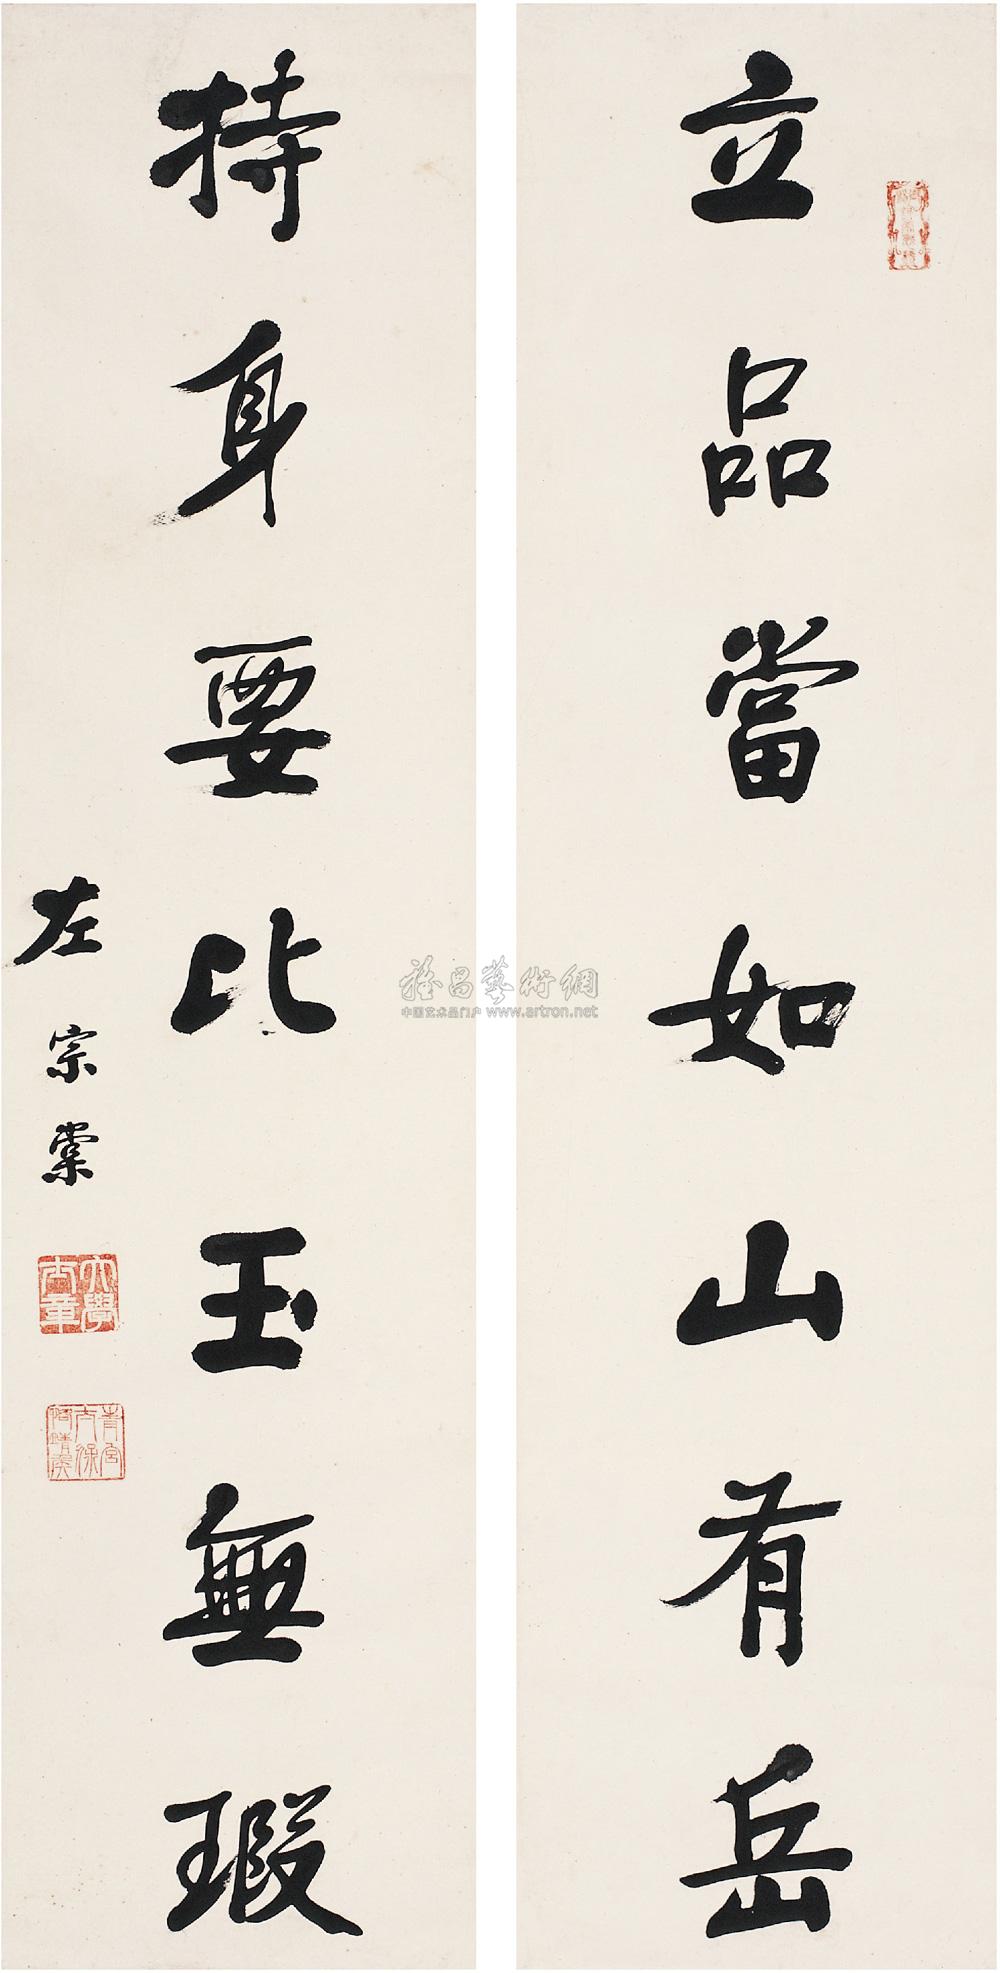 立品當如山有岳
持身要比玉無瑕
左宗棠
大學士章
青宮太保恪靖侯
雅昌藝術網
中国艺术品门户 www.artron.net